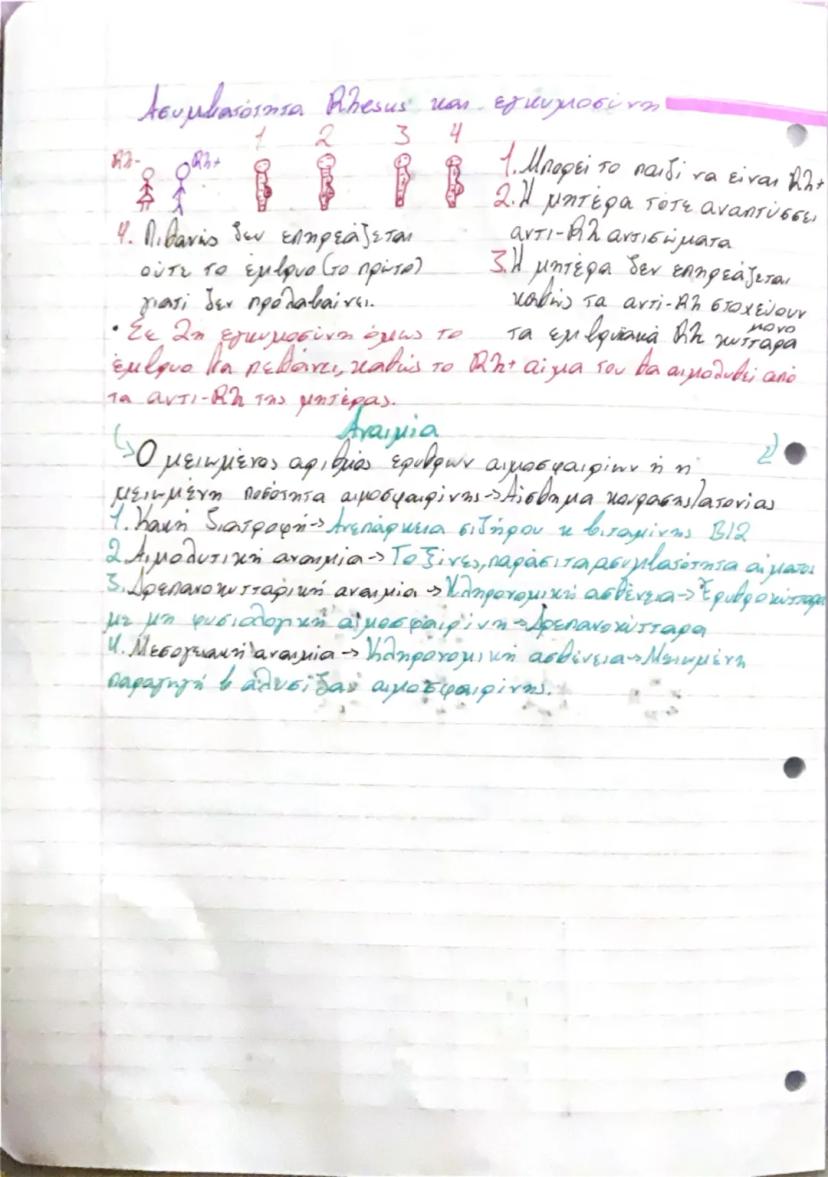 Ασυμβατότητα Rhesus και εγκυμοσύνη
1 2 3 4
Rh- Rh+
1. Μπορεί το παιδί να είναι Rh+
2. Η μητέρα τότε αναπτύσσει
αντι-Rh αντισώματα
3. Η μητέρα δεν επηρεάζεται
καθώς τα αντι-Rh στοχεύουν
μόνο
τα εμβρυϊακά Rh κύτταρα
4. Πιθανώς δεν επηρεάζεται
ούτε το έμβρυο (το πρώτο)
γιατί δεν προλαβαίνει.
• Σε 2η εγκυμοσύνη όμως το
έμβρυο θα πεθάνει, καθώς το Rh+ αίμα του θα αιμολυθεί από
τα αντι-Rh της μητέρας.
Αναιμία
2)
Ο μειωμένος αριθμός ερυθρών αιμοσφαιρίων ή η
μειωμένη ποσότητα αιμοσφαιρίνης→Αίσθημα κούρασης/ατονίας
1. Κακή διατροφή→Ανεπάρκεια σιδήρου κ βιταμίνης B12
2. Αιμολυτική αναιμία→Τοξίνες, παράσιτα, ασυμβατότητα αίματος
3. Δρεπανοκυτταρική αναιμία→Κληρονομική ασθένεια→Ερυθροκύτταρα
με μη φυσιολογική αιμοσφαιρίνη→Δρεπανοκύτταρα
4. Μεσογειακή αναιμία→Κληρονομική ασθένεια→Μειωμένη
παραγωγή β αλυσίδας αιμοσφαιρίνης.